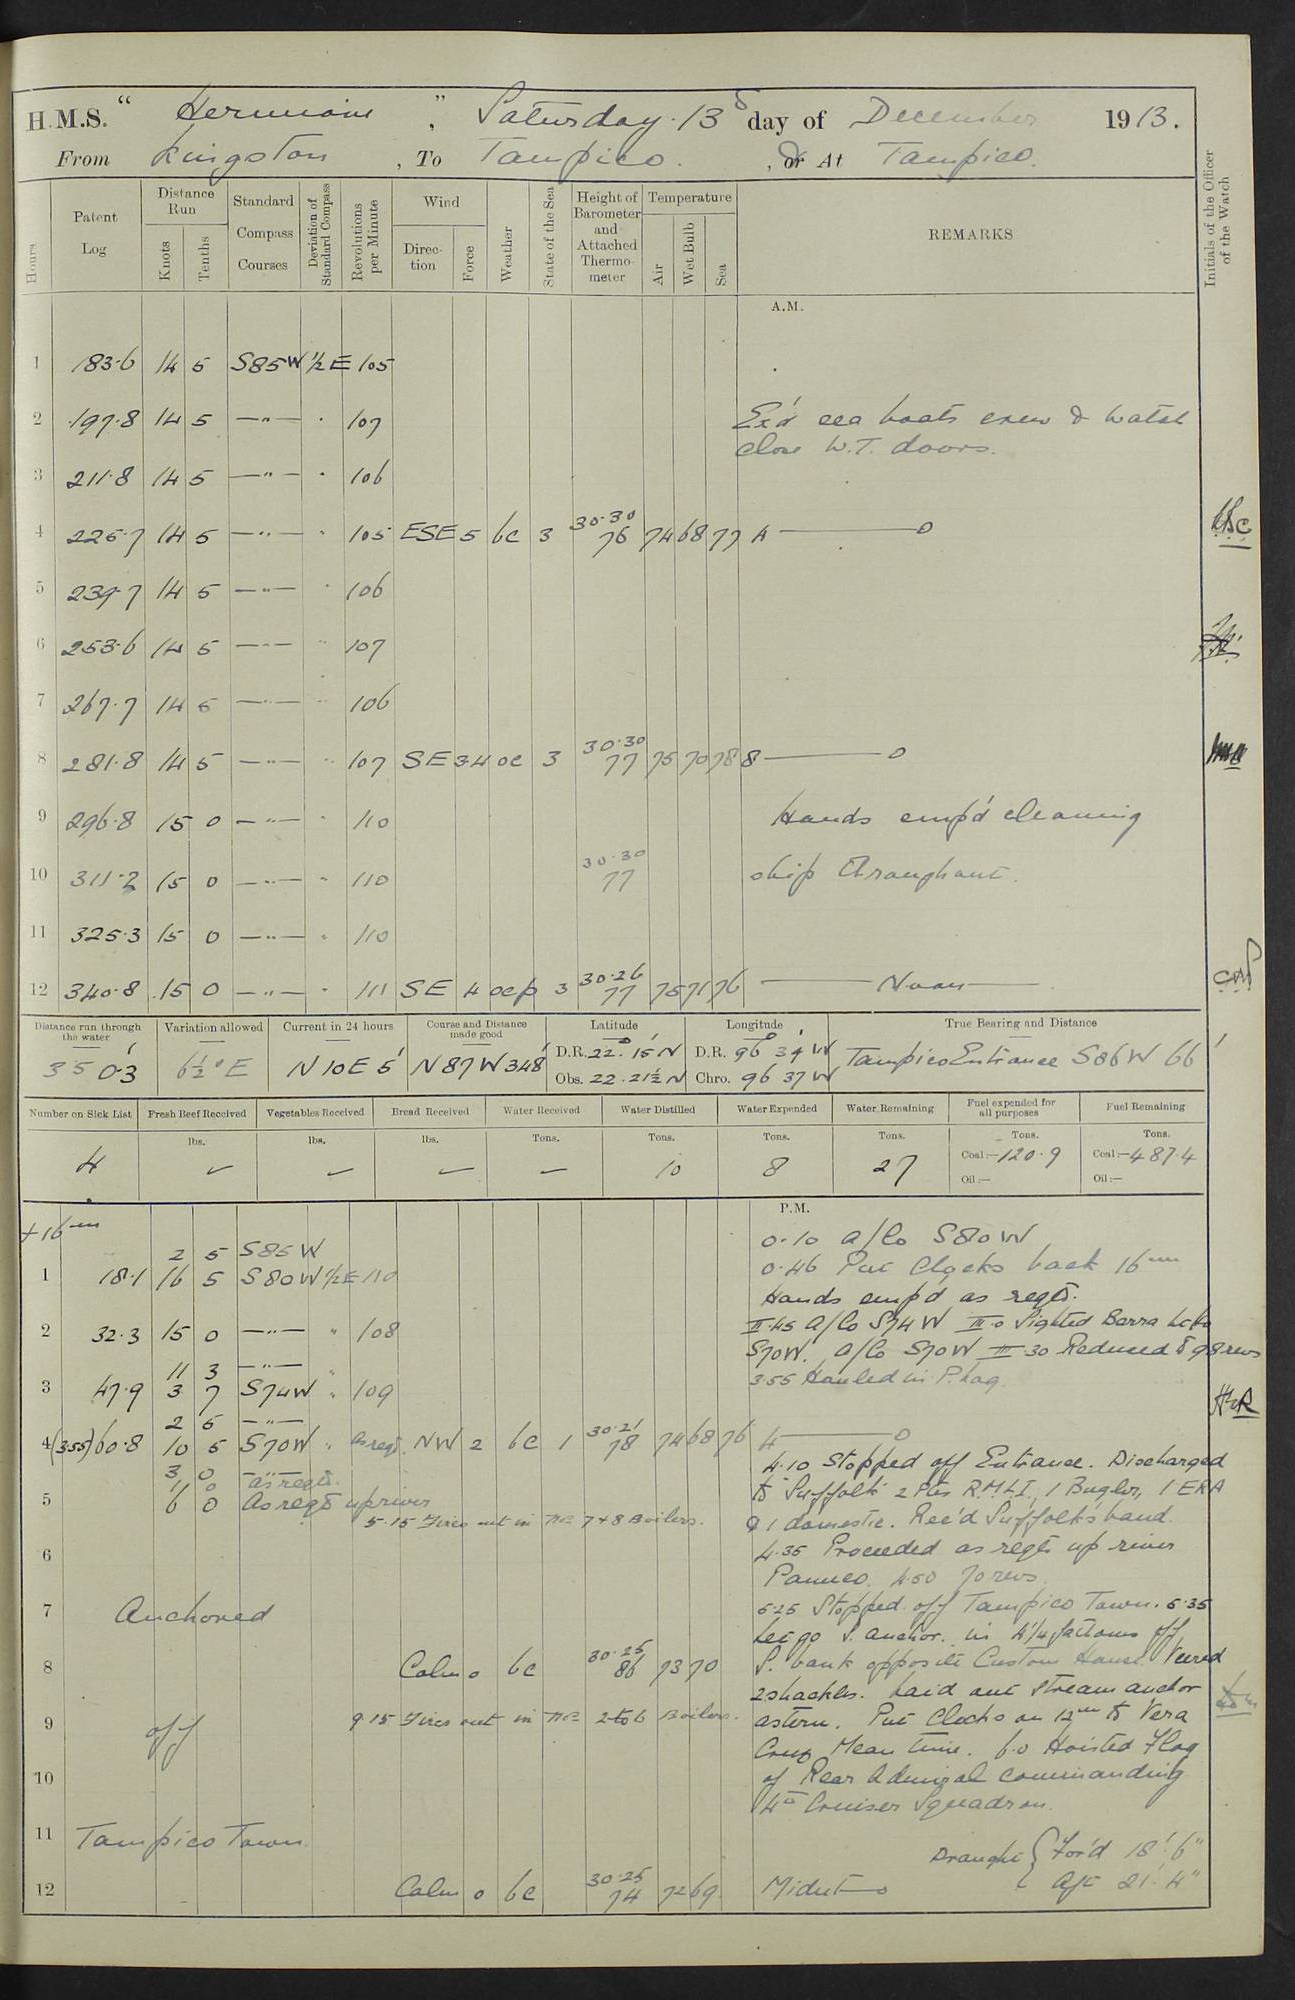 H.M.S. "Hermione", Saturday 13th day of December 1913.
From Kingston, To Tampico, or At Tampico.
Hours
Patent Log
Distance Run
Knots
Tenths
Standard Compass Courses
Deviation of Standard Compass
Revolutions per Minute
Wind
Direction
Force
Weather
State of the Sea
Height of Barometer and Attached Thermometer
Temperature
Air
Wet Bulb
Sea
REMARKS
Initials of the Officer of the Watch
A.M.
1 183.6 14 5 S85W ½E 105
2 197.8 14 5 —"— " 107 Ex'd sea boats crew & watch
close W.T. doors.
3 211.8 14 5 —"— " 106
4 225.7 14 5 —"— " 105 ESE 5 bc 3 30.30 76 74 68 77 4 ——— 0
5 239.7 14 5 —"— " 106
6 253.6 14 5 —"— " 107
7 267.7 14 5 —"— " 106
8 281.8 14 5 —"— " 107 SE 3.4 oc 3 30.30 77 75 70 78 8 ——— 0
9 296.8 15 0 —"— " 110 Hands emp'd cleaning
10 311.2 15 0 —"— " 110 30.30 77 ship throughout.
11 325.3 15 0 —"— " 110
12 340.8 15 0 —"— " 111 SE 4 ocp 3 30.26 77 75 71 76 ——— Noon ———
Distance run through the water 350.3
Variation allowed 6½° E
Current in 24 hours N 10 E 5'
Course and Distance made good N 87 W 348'
Latitude
D.R. 22° 15' N
Obs. 22. 21½ N
Longitude
D.R. 96° 34' W
Chro. 96 37 W
True Bearing and Distance
Tampico Entrance S86W 66'
Number on Sick List 4
Fresh Beef Received lbs. ✓
Vegetables Received lbs. ✓
Bread Received lbs. ✓
Water Received Tons. ✓
Water Distilled Tons. 10
Water Expended Tons. 8
Water Remaining Tons. 27
Fuel expended for all purposes Tons. Coal:—120.9 Oil:—
Fuel Remaining Tons. Coal:—487.4 Oil:—
P.M.
+16 min
2 5 S85W 0.10 a/co S80W
1 18.1 16 5 S80W ½E 110 0.46 Put Clocks back 16 min
Hands emp'd as reqd.
2 32.3 15 0 —"— " 108 II.45 a/co S74W III.0 Sighted Barra
S70W. a/co S70W III 30 Reduced to 98 revs
11 3 —"—
3 47.9 3 7 S74W " 109 3.55 Hauled in P. Log.
2 5 —"—
4 (3.55) 60.8 10 5 S70W " as reqd. NW 2 bc 1 30.21 78 74 68 76 4 ——— 0
3 0 —"— 4.10 Stopped off Entrance. Discharged
1 0 as reqd. to Suffolk 2 Ptes R.M.L.I, 1 Bugler, 1 ERA
5 6 0 As reqd up river
5.15 Fires out in Nos 7 & 8 Boilers. & 1 domestic. Rec'd Suffolk's band.
4.35 Proceeded as reqd. up river
6
Panuco. 4.50 70 revs.
7 Anchored 5.25 Stopped off Tampico Town. 5.35
Let go S. anchor. in 4¼ fathoms off
8 Calm 0 bc 30.25 86 73 70 S. bank opposite Custom House. Veered
2 shackles. Laid out stream anchor
9 off 9.15 Fires out in Nos 2 to 6 Boilers. astern. Put Clocks on 12 min to Vera
Cruz Mean time. 6.0 Hoisted Flag
10 of Rear Admiral commanding
4th Cruiser Squadron.
11 Tampico Town
Draught { For'd 18' 6"
Aft 21' 4"
12 Calm 0 bc 30.25 74 72 69 Midnt — 0